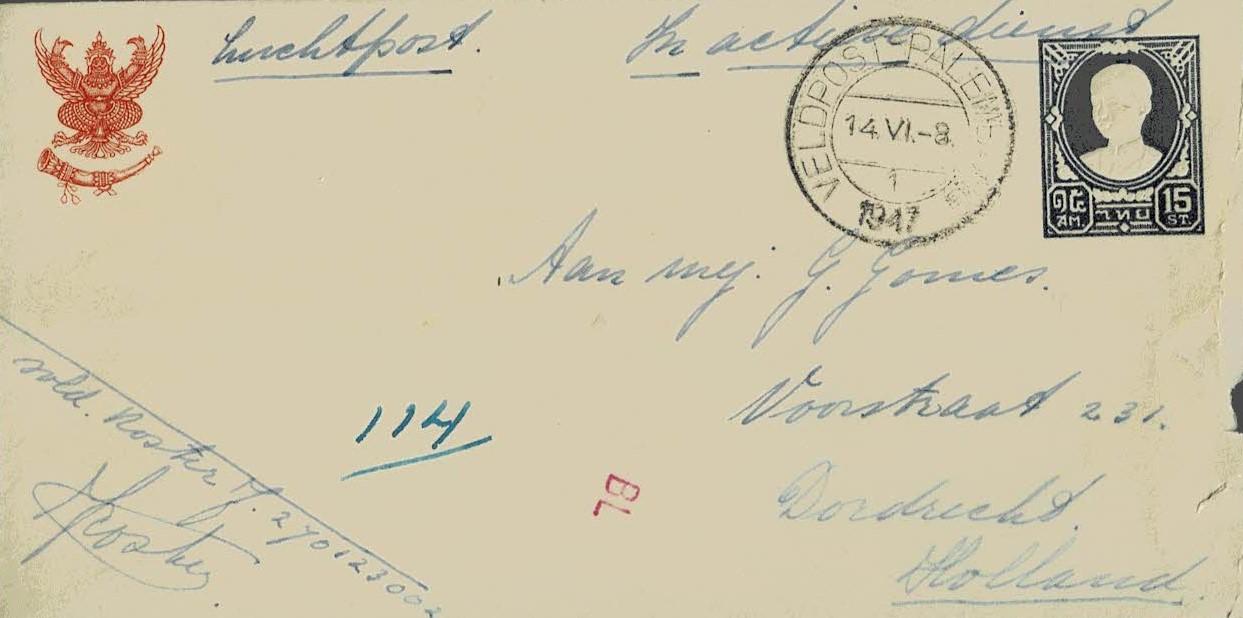 Luchtpost.
In actieve dienst
VELDPOST PALEMBANG
14.VI.-8.
1
1947
๑๕
AM.
ไทย
15
ST.
Aan mej. G. Gomes.
Voorstraat 231.
Dordrecht.
Holland.
114
sold. Koster J. 270123002
JKoster